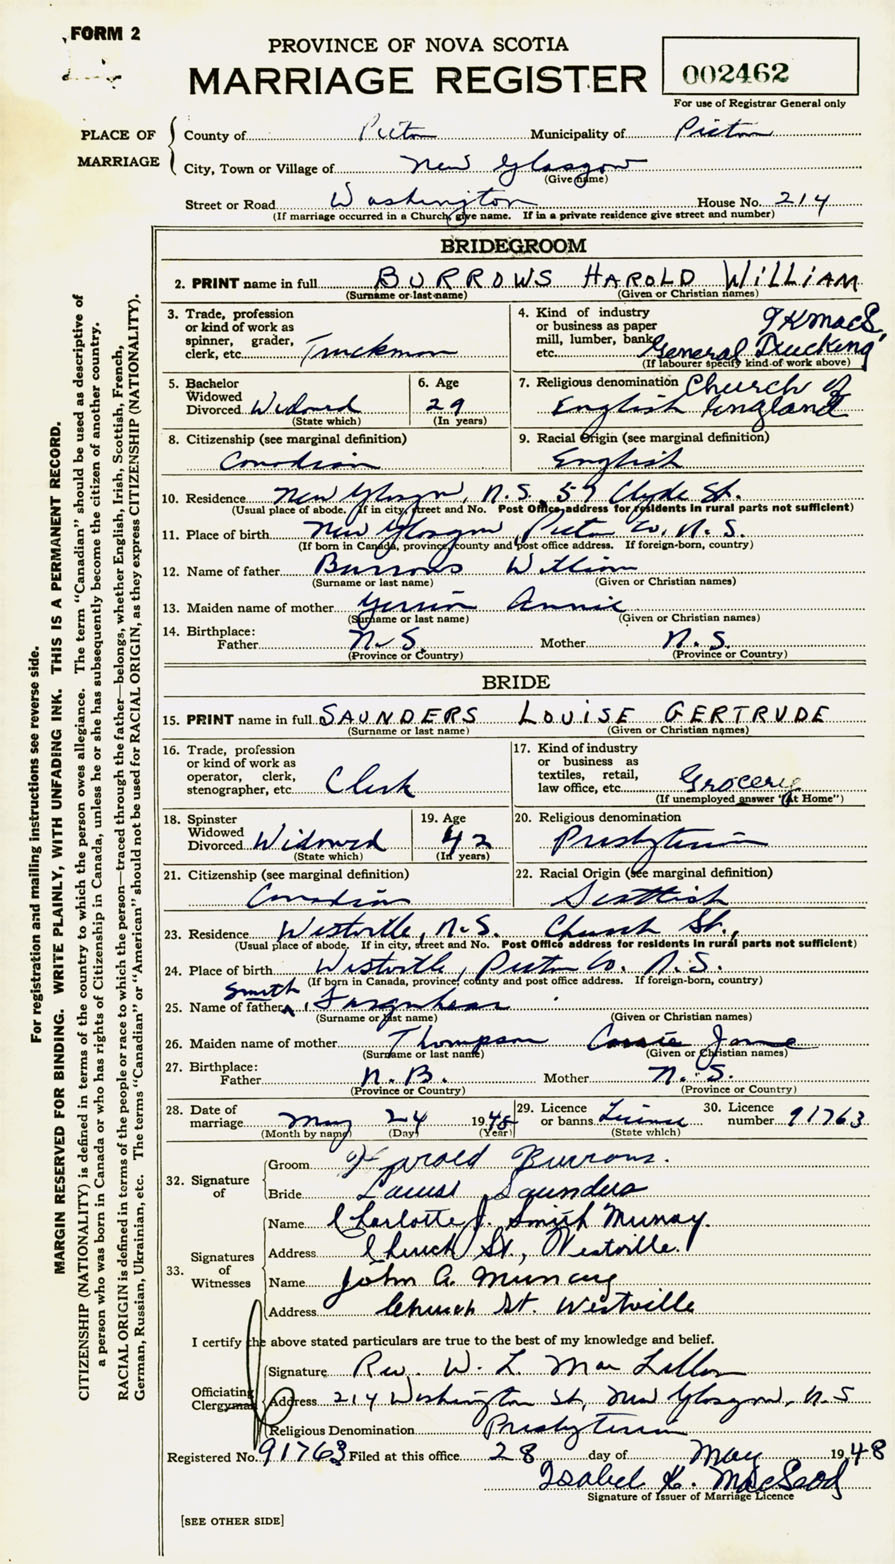 FORM 2
PROVINCE OF NOVA SCOTIA
MARRIAGE REGISTER
002462
For use of Registrar General only
PLACE OF MARRIAGE
County of Pictou Municipality of Pictou
City, Town or Village of New Glasgow
(Give name)
Street or Road Washington House No. 214
(If marriage occurred in a Church, give name. If in a private residence give street and number)
BRIDEGROOM
2. PRINT name in full BURROWS HAROLD WILLIAM
(Surname or last name) (Given or Christian names)
3. Trade, profession or kind of work as spinner, grader, clerk, etc. Truckman
4. Kind of industry or business as paper mill, lumber, bank, etc. General Trucking
(If labourer specify kind of work above)
5. Bachelor Widowed Divorced Widowed
(State which)
6. Age 29
(In years)
7. Religious denomination Church of England English
8. Citizenship (see marginal definition) Canadian
9. Racial Origin (see marginal definition) English
10. Residence New Glasgow, N.S. 59 Clyde St.
(Usual place of abode. If in city, street and No. Post Office address for residents in rural parts not sufficient)
11. Place of birth New Glasgow, Pictou Co, N.S.
(If born in Canada, province, county and post office address. If foreign-born, country)
12. Name of father Burrows William
(Surname or last name) (Given or Christian names)
13. Maiden name of mother Annie
(Surname or last name) (Given or Christian names)
14. Birthplace:
Father N.S. Mother N.S.
(Province or Country) (Province or Country)
BRIDE
15. PRINT name in full SAUNDERS LOUISE GERTRUDE
(Surname or last name) (Given or Christian names)
16. Trade, profession or kind of work as operator, clerk, stenographer, etc. Clerk
17. Kind of industry or business as textiles, retail, law office, etc. Grocery
(If unemployed answer "At Home")
18. Spinster Widowed Divorced Widowed
(State which)
19. Age 42
(In years)
20. Religious denomination Presbyterian
21. Citizenship (see marginal definition) Canadian
22. Racial Origin (see marginal definition) Scottish
23. Residence Westville, N.S. Church St.,
(Usual place of abode. If in city, street and No. Post Office address for residents in rural parts not sufficient)
24. Place of birth Westville, Pictou Co. N.S.
(If born in Canada, province, county and post office address. If foreign-born, country)
25. Name of father Smith Farquhar
(Surname or last name) (Given or Christian names)
26. Maiden name of mother Thompson Jane
(Surname or last name) (Given or Christian names)
27. Birthplace:
Father N.B. Mother N.S.
(Province or Country) (Province or Country)
28. Date of marriage May 24 1948
(Month by name) (Day) (Year)
29. Licence or banns License
(State which)
30. Licence number 91763
32. Signature of
Groom Harold Burrows.
Bride Louise Saunders
33. Signatures of Witnesses
Name Charlotte J. Smith Murray.
Address Church St., Westville.
Name John A. Murray
Address Church St. Westville
I certify the above stated particulars are true to the best of my knowledge and belief.
Officiating Clergyman
Signature Rev. W. L. Mac Lellan
Address 214 Washington St, New Glasgow, N.S
Religious Denomination Presbyterian
Registered No. 91763 Filed at this office 28 day of May 1948
Isabel K. MacLeod
Signature of Issuer of Marriage Licence
[SEE OTHER SIDE]
For registration and mailing instructions see reverse side.
MARGIN RESERVED FOR BINDING. WRITE PLAINLY, WITH UNFADING INK. THIS IS A PERMANENT RECORD.
CITIZENSHIP (NATIONALITY) is defined in terms of the country to which the person owes allegiance. The term "Canadian" should be used as descriptive of
a person who was born in Canada or who has rights of Citizenship in Canada, unless he or she has subsequently become the citizen of another country.
RACIAL ORIGIN is defined in terms of the people or race to which the person—traced through the father—belongs, whether English, Irish, Scottish, French,
German, Russian, Ukrainian, etc. The terms "Canadian" or "American" should not be used for RACIAL ORIGIN, as they express CITIZENSHIP (NATIONALITY).